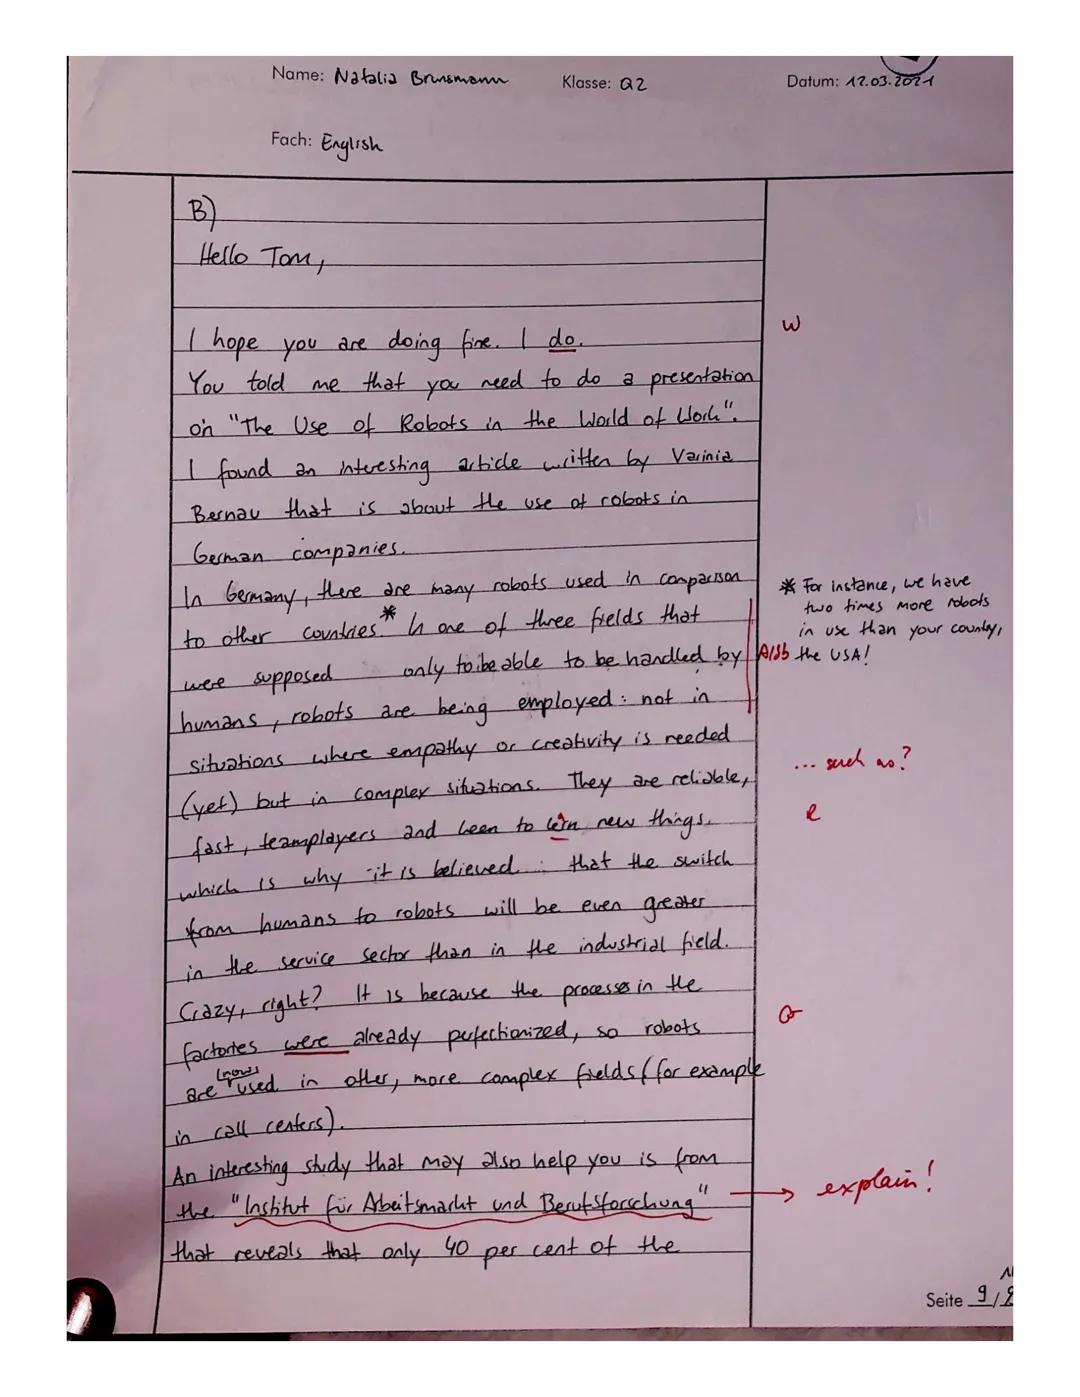 Name: Natalia Brunsmann Klasse: Q2 Datum: 12.03.2021
Fach: English
B)
Hello Tom,
I hope you are doing fine. I do.
w
You told me that you need to do a presentation
on "The Use of Robots in the World of Work".
I found an interesting article written by Varinia
Bernau that is about the use of robots in
German companies.
In Germany, there are many robots used in comparison
to other countries.* In one of three fields that
* For instance, we have
two times more robots
in use than your country,
the USA!
were supposed only to be able to be handled by
A/Sb
humans, robots are being employed: not in
situations where empathy or creativity is needed
... such as?
(yet) but in complex situations. They are reliable,
fast, teamplayers and keen to lern new things.
R
which is why it is believed that the switch
from humans to robots will be even greater
in the service sector than in the industrial field.
Crazy, right? It is because the processes in the
factories were already perfectionized, so robots
are (now) used in other, more complex fields (for example
in call centers).
An interesting study that may also help you is from
the "Institut für Arbeitsmarkt und Berufsforschung"
explain!
that reveals that only 40 per cent of the
Seite 9/